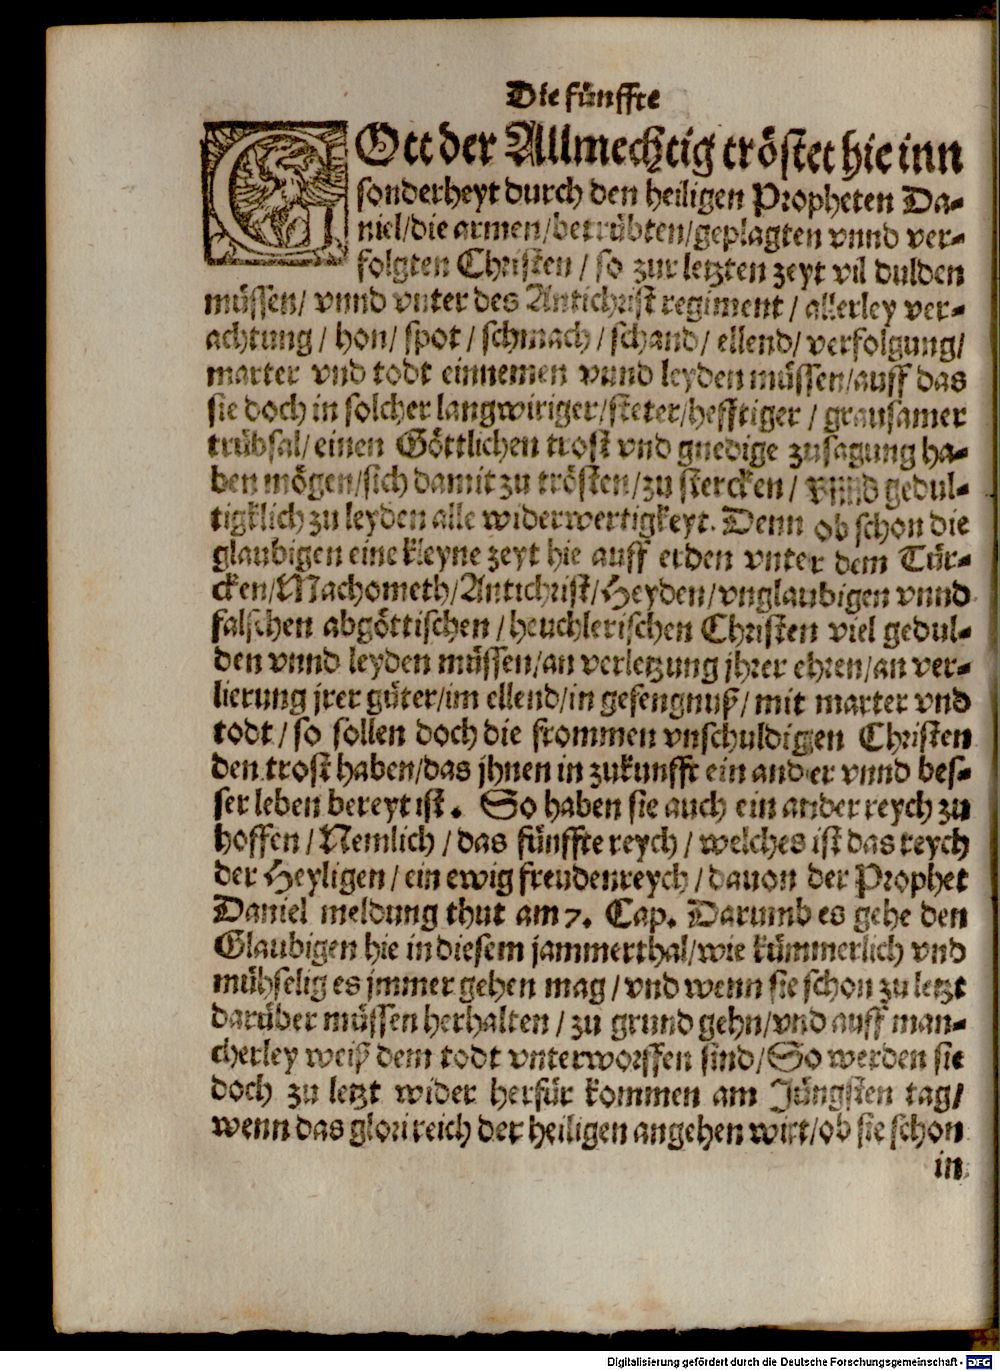 Die fünffte
GOtt der Allmechtig tröstet hie inn
sonderheyt durch den heiligen Propheten Da-
niel/die armen/betrübten/geplagten vnnd ver-
folgten Christen / so zur letzten zeyt vil dulden
müssen/ vnnd vnter des Antichrist regiment / allerley ver-
achtung / hon/ spot / schmach / schand/ ellend/ verfolgung/
marter vnd todt einnemen vnnd leyden müssen/auff das
sie doch in solcher langwiriger/steter/hefftiger / grausamer
trübsal/ einen Göttlichen trost vnd gnedige zusagung ha-
ben mögen/sich damit zu trösten/zu stercken / vnnd gedul-
tigklich zu leyden alle widerwertigkeyt. Denn ob schon die
glaubigen eine kleyne zeyt hie auff erden vnter dem Tür-
cken/Machometh/Antichrist/Heyden/vnglaubigen vnnd
falschen abgöttischen / heuchlerischen Christen viel gedul-
den vnnd leyden müssen/an verletzung jhrer ehren/an ver-
lierung jrer güter/im ellend/in gefengnuß/ mit marter vnd
todt / so sollen doch die frommen vnschuldigen Christen
den trost haben/das jhnen in zukunfft ein ander vnnd bes-
ser leben bereyt ist. So haben sie auch ein ander reych zu
hoffen / Nemlich / das fünffte reych / welches ist das reych
der Heyligen / ein ewig freudenreych / dauon der Prophet
Daniel meldung thut am 7. Cap. Darumb es gehe den
Glaubigen hie in diesem jammerthal/wie kümmerlich vnd
mühselig es jmmer gehen mag / vnd wenn sie schon zu letzt
darüber müssen herhalten / zu grund gehn/vnd auff man-
cherley weiß dem todt vnterworffen sind/So werden sie
doch zu letzt wider herfür kommen am Jüngsten tag/
wenn das glori reich der heiligen angehen wirt/ob sie schon
in
Digitalisierung gefördert durch die Deutsche Forschungsgemeinschaft - DFG